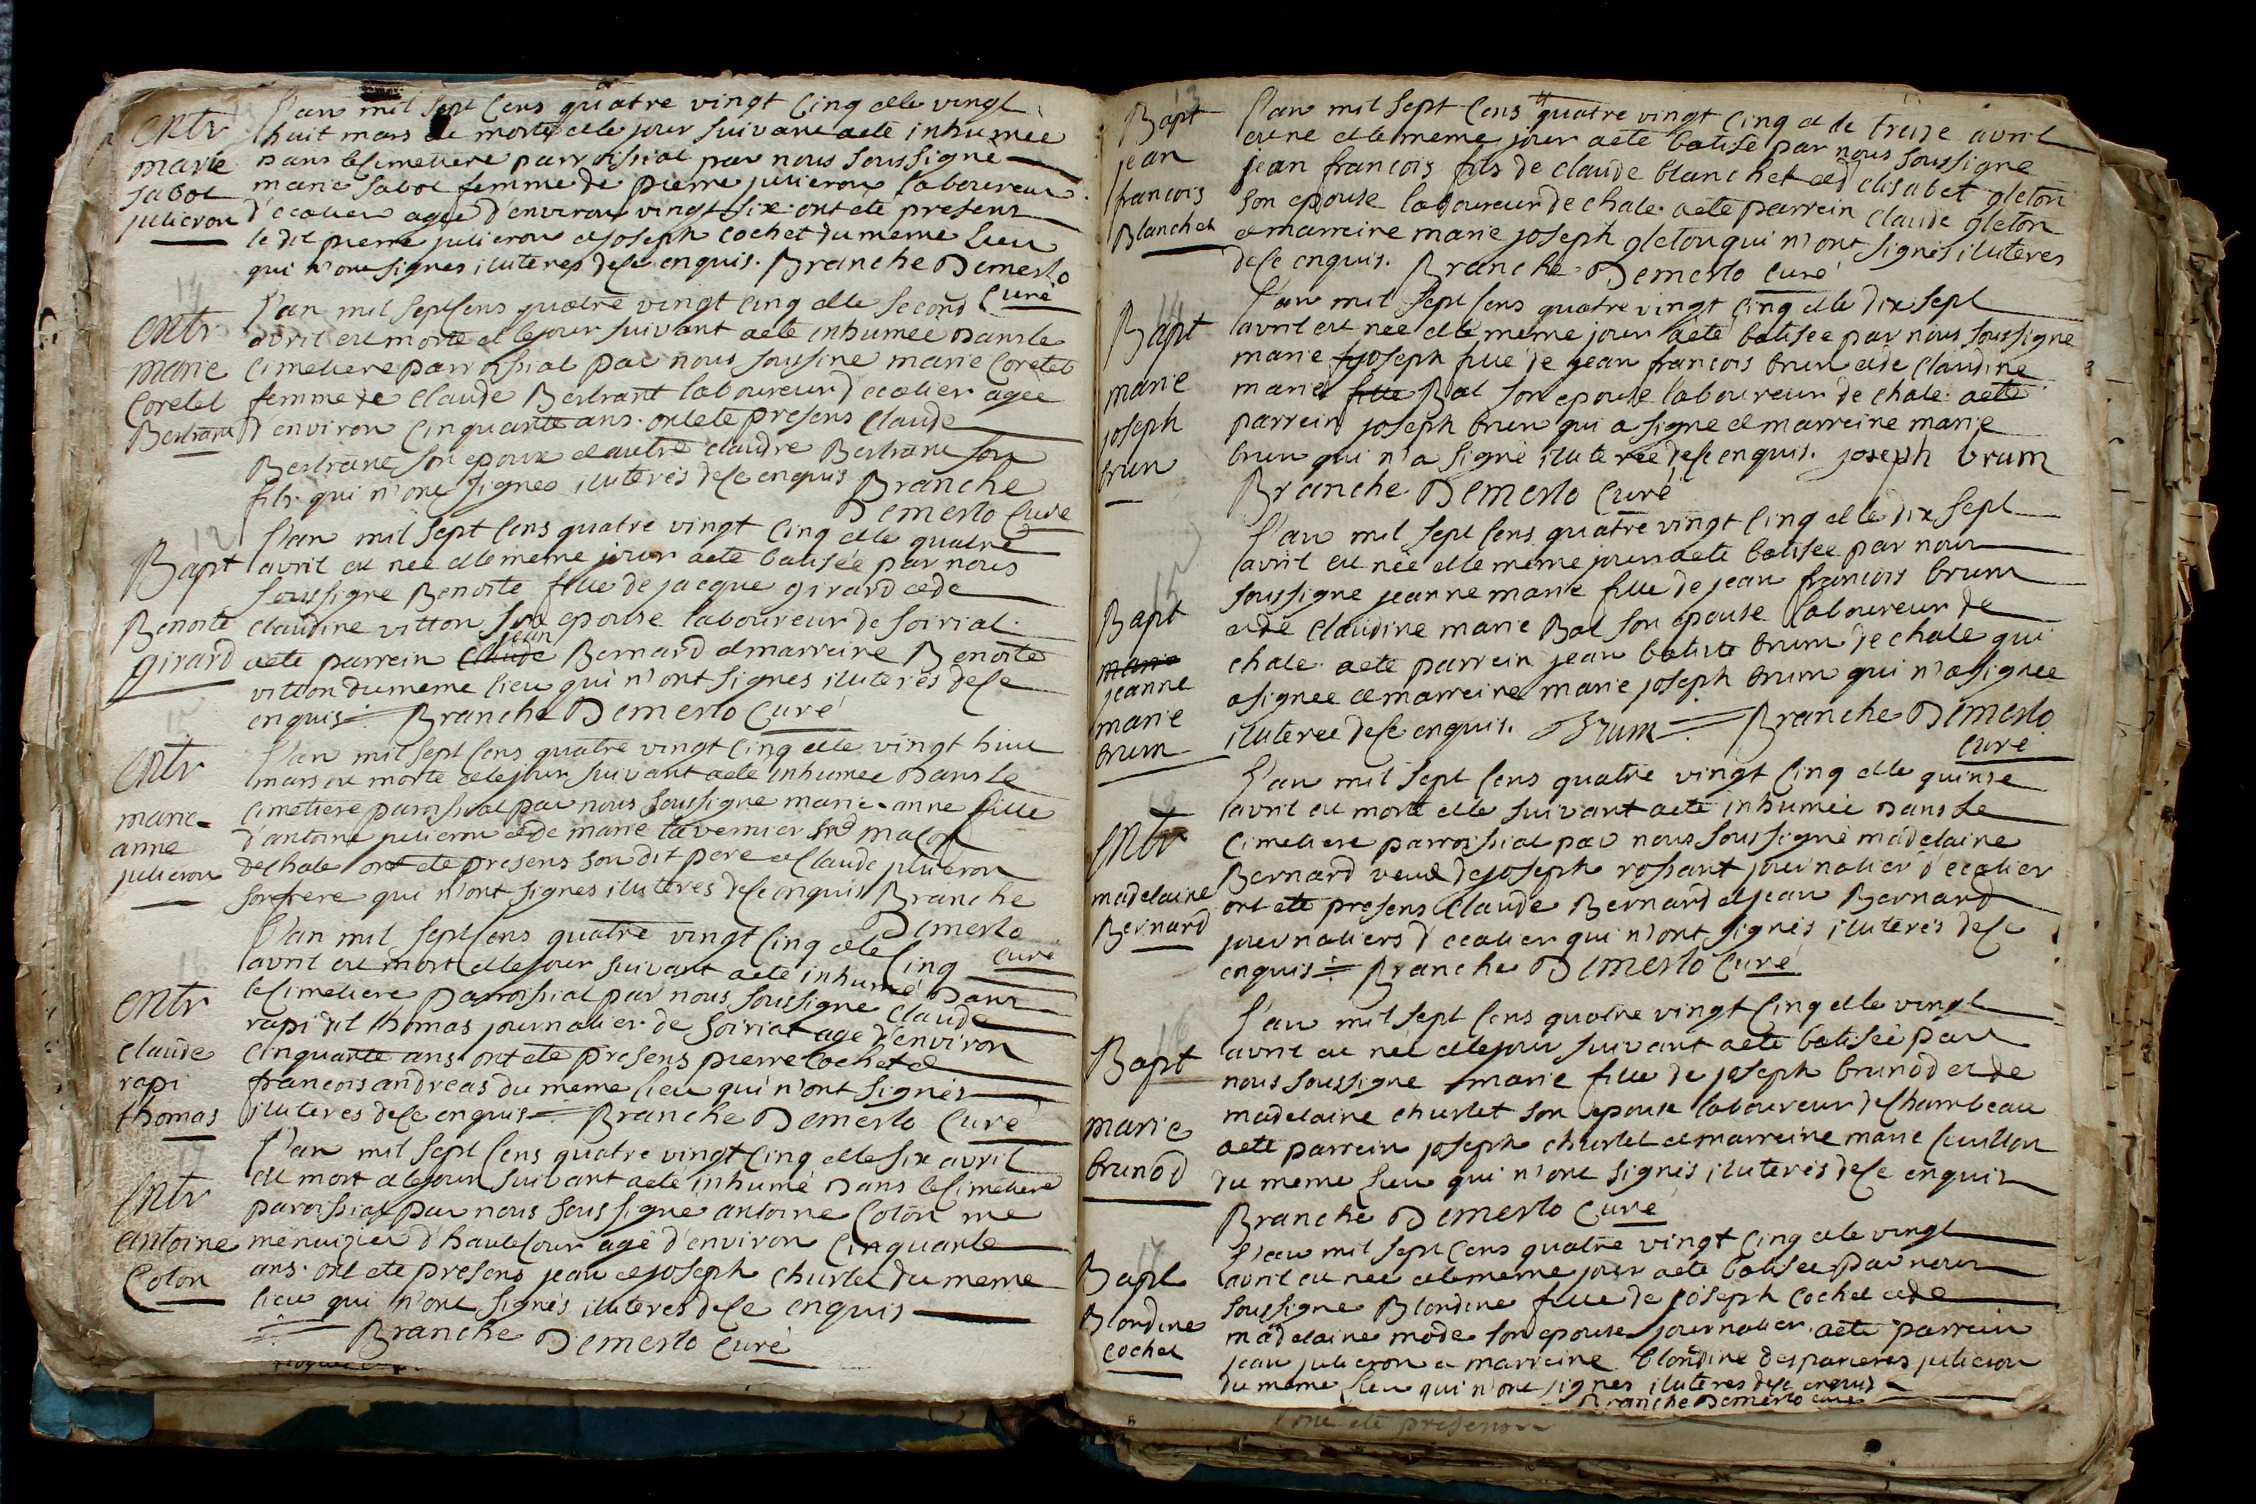 entr
marie
sabot
julieron
l'an mil sept cens quatre vingt cinq et le vingt
huit mars est morte et le jour suivant a eté inhumée
dans le cimetiere parroissial par nous soussigné
marie sabot femme de pierre julieron laboureur
d'ecotier agée d'environ vingt six ont été presens
le dit pierre julieron et joseph cochet du meme lieu
qui n'ont signes iluteres de ce enquis. Branche Demerlo
curé
entr
marie
coretet
Bertrant
l'an mil sept cens quatre vingt cinq et le second
avril est morte et le jour suivant a eté inhumée dans le
cimetiere parroissial par nous sousiné marie coretet
femme de claude Bertrant laboureur d'ecotier agée
d'environ cinquante ans. ont ete presens claude
Bertrant son epoux et autre claudre Bertrant son
fils. qui n'ont signes iluterés de ce enquis Branche
Demerlo curé
12
Bapt
Benoite
girard
l'an mil sept cens quatre vingt cinq et le quatre
avril est née et le meme jour a eté batisée par nous
soussigné Benoite fille de jacque girard et de
claudine vitton son epouse laboureur de soiriat.
a eté parrein claude jean Bernard et marreine Benoite
vitton du meme lieu qui n'ont signés iluterés de ce
enquis Branche Demerlo curé
entr
marie
anne
julieron
l'an mil sept cens quatre vingt cinq et le vingt huit
mars est morte et le jour suivant a eté inhumée dans le
cimetiere paroissial par nous soussigné marie anne fille
d'antoine julieron et de marie tavernier maçon
de chale ont eté presens son dit pere et claude julieron
son frere qui n'ont signes iluterés de ce enquis Branche
Demerlo
curé
entr
claude
rapi
thomas
l'an mil sept cens quatre vingt cinq et le cinq
avril est mort et le jour suivant a eté inhumé dans
le cimetiere parroissial par nous soussigné claude
rapi dit thomas journalier de soiriat agé d'environ
cinquante ans. ont eté presens pierre cochet et
francois andreas du meme lieu qui n'ont signés
iluteres de ce enquis Branche Demerlo curé
entr
antoine
coton
l'an mil sept cens quatre vingt cinq et le six avril
est mort et le jour suivant a eté inhumé dans le cimetiere
paroissial par nous soussigné antoine coton me
menuizier d'hautecour agé d'environ cinquante
ans. ont eté presens jean et joseph churlet du meme
lieu qui n'ont signés iluteres de ce enquis
Branche Demerlo curé
13
Bapt
jean
francois
Blanchet
l'an mil sept cens quatre vingt cinq et le treize avril
est né et le meme jour a eté batisé par nous soussigné
jean francois fils de claude blanchet et d'elisabet gleton
son epouse laboureur de chale. a eté parrein claude gleton
et marreine marie joseph gleton qui n'ont signés iluteres
de ce enquis. Branche Demerlo curé
14
Bapt
marie
joseph
brun
l'an mil sept cens quatre vingt cinq et le dix sept
avril est née et le meme jour a eté batisée par nous soussigné
marie joseph fille de jean francois brun et de claudine
marie fille Bat son epouse laboureur de chale. a eté
parrein joseph brun qui a signé et marreine marie
brun qui n'a signé iluterée de ce enquis. joseph brum
Branche Demerlo curé
15
Bapt
marie
jeanne
marie
brum
l'an mil sept cens quatre vingt cinq et le dix sept
avril est née et le meme jour a eté batisée par nous
soussigné jeanne marie fille de jean francois brum
et de claudine marie Bat son epouse laboureur de
chale. a eté parrein jean batiste brum de chale qui
a signée et marreine marie joseph brum qui n'a signée
iluterée de ce enquis. Brum Branche Demerlo
curé
entr
madelaine
Bernard
l'an mil sept cens quatre vingt cinq et le quinse
avril est morte et le suivant a eté inhumée dans le
cimetiere parroissial par nous soussigné madelaine
Bernard veuve de joseph rossant journalier d'ecotier
ont eté presens claude Bernard et jean Bernard
journaliers d'ecotier qui n'ont signés iluterés de ce
enquis Branche Demerlo curé
16
Bapt
marie
brunod
l'an mil sept cens quatre vingt cinq et le vingt
avril est née et le jour suivant a eté batisée par
nous soussigné marie fille de joseph brunod et de
madelaine churlet son epouse laboureur de chambeau
a eté parrein joseph churlet et marreine marie cuillon
du meme lieu qui n'ont signés iluterés de ce enquis
Branche Demerlo curé
17
Bapt
Blondine
cochet
l'an mil sept cens quatre vingt cinq et le vingt
avril est née et le meme jour a eté batisée par nous
soussigné Blondine fille de joseph cochet et de
madelaine mode son epouse journalier. a eté parrein
jean julieron et marreine blondine julieron
du meme lieu qui n'ont signes iluteres de ce enquis
Branche Demerlo curé
ont eté presens